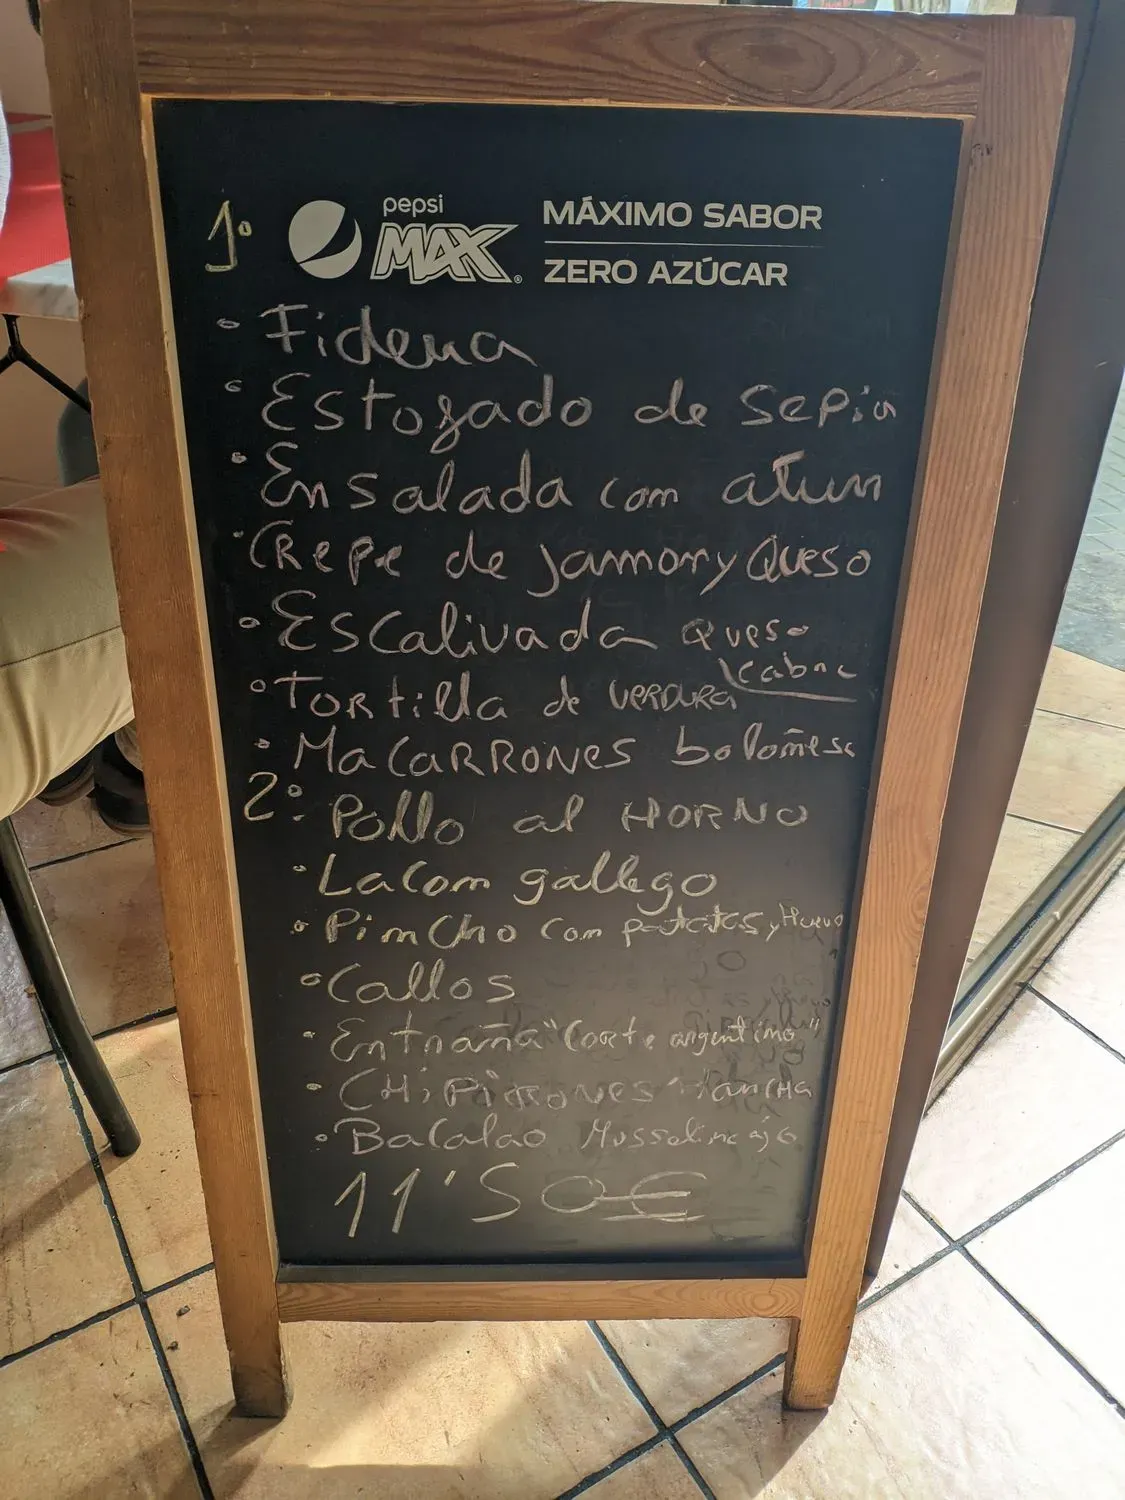 1º
pepsi
MAX
MÁXIMO SABOR
ZERO AZÚCAR
Fideua
Estofado de Sepia
Ensalada com atun
CRepe de jamon y Queso
Escalivada queso
cabra
TORtilla de VERDURA
MaCaRRONES boloñesa
2º Pollo al HORNO
Lacom gallego
Pimcho com patatas y Huevo
Callos
Entraña "Corte argentimo"
CHiPiRONES Plancha
BaCalao Musselina ajo
11'50€